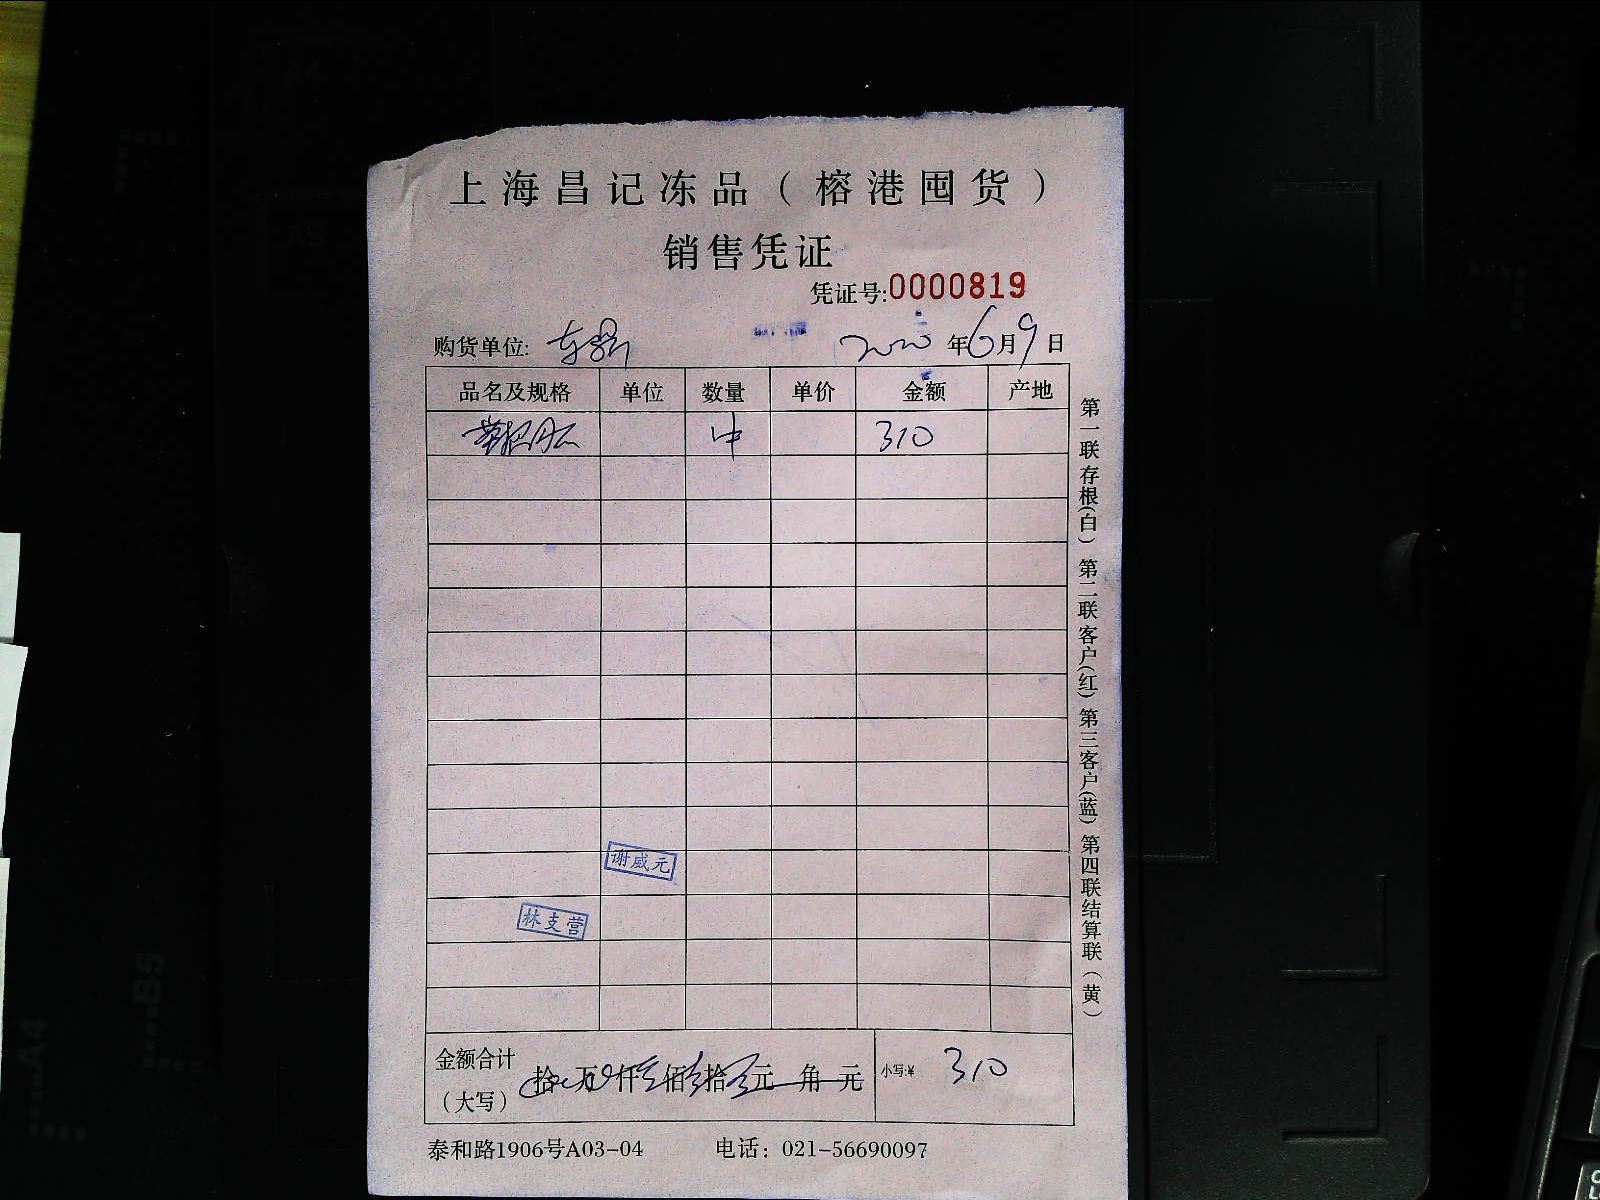 上海昌记冻品（榕港囤货）
销售凭证
凭证号:0000819
购货单位: 2020年6月9日
品名及规格 单位 数量 单价 金额 产地
1件 310
谢威元
林支营
金额合计（大写） 拾 万 仟 佰 拾 元 角 元 小写:¥ 310
泰和路1906号A03-04 电话：021-56690097
第一联存根(白) 第二联客户(红) 第三客户(蓝) 第四联结算联（黄）
A4
A5
B5
A4